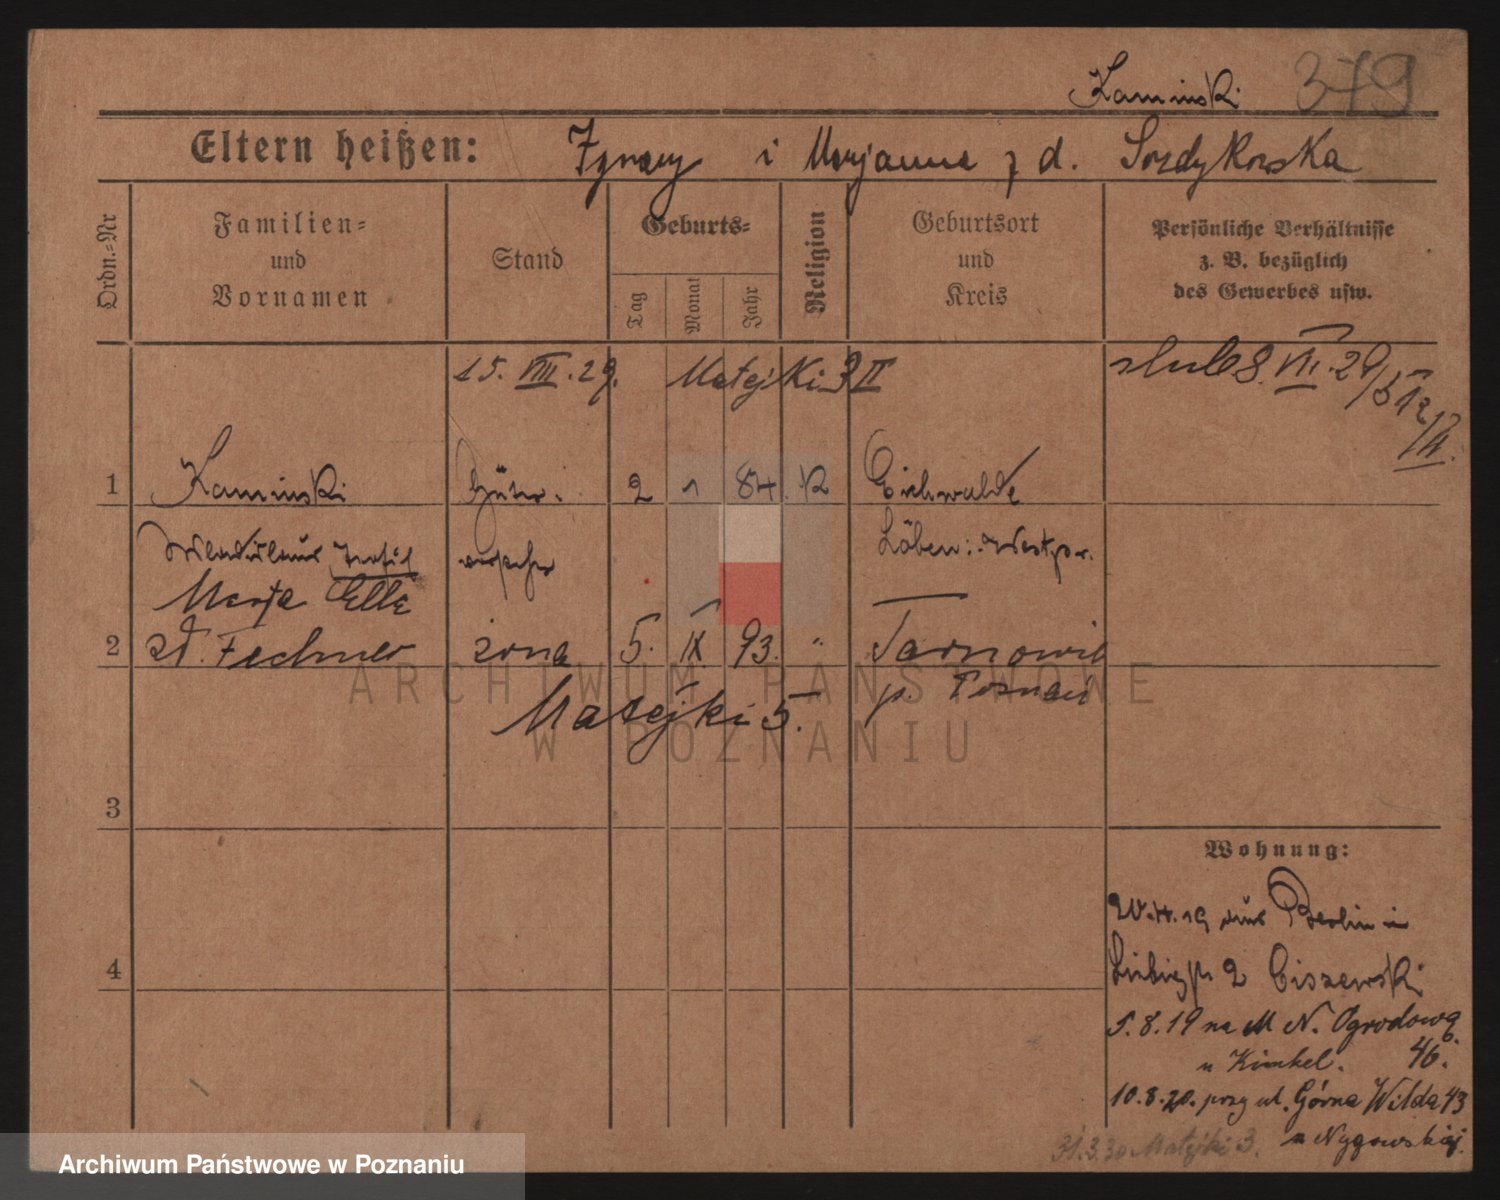 Kaminski 379
Eltern heißen: Ignacy i Marjanna z d.
Ordn.=Nr
Familien= und Vornamen
Stand
Geburts=
Tag
Monat
Jahr
Religion
Geburtsort und Kreis
Persönliche Verhältnisse z. B. bezüglich des Gewerbes usw.
15. VIII. 29. Matejki 3 II
ślub 8. VII. 29
1 Kaminski 2 1 84 K Eichwalde
Löben: Westpr.
Marja Elle
2 zd. Fechner żona 5. IX. 93. " Tarnowie
Matejki 5. p. Poznań
3
4
Wohnung:
20.4.19 aus Berlin in
2 Ciszewski
5.8.19 na M N. Ogrodową
u Kinkel. 46.
10.8.20. przy ul. Górna Wilda 43
u Nygowskiej.
31.3.30 Matejki 3.
ARCHIWUM PAŃSTWOWE
W POZNANIU
Archiwum Państwowe w Poznaniu